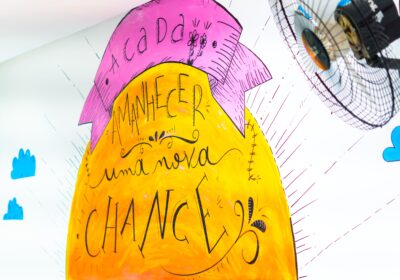 A CADA
AMANHECER
uma nova
CHANCE